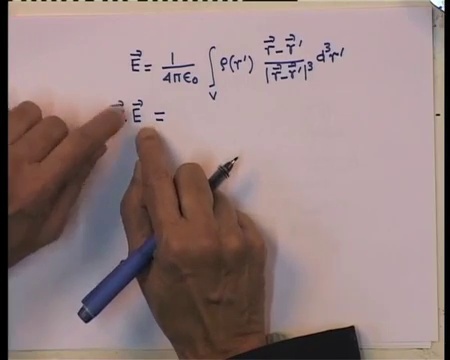 \vec{E} = \frac{1}{4\pi\epsilon_0} \int_V \rho(r') \frac{\vec{r}-\vec{r}'}{|\vec{r}-\vec{r}'|^3} d^3r'
. \vec{E} =